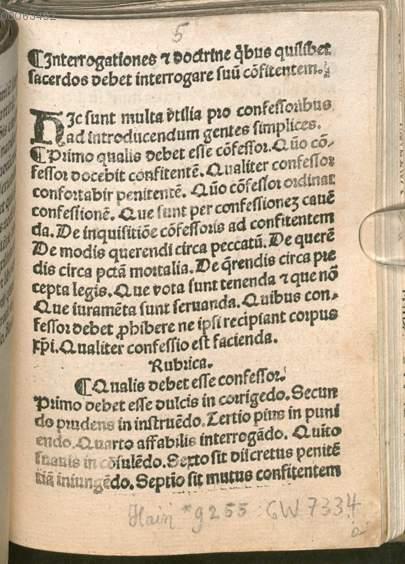 5
¶ Interrogationes ⁊ doctrine q̃bus quilibet
sacerdos debet interrogare suũ cõfitentem.
HIc sunt multa vtilia pro confessoribus
ad introducendum gentes simplices.
¶ Primo qualis debet esse cõfessor. Quõ cõ-
fessor docebit confitentẽ. Qualiter confessor
confortabit penitentẽ. Quõ cõfessor ordinat
confessionẽ. Que sunt per confessionẽ cauẽ
da. De inquisitiõe cõfessoris ad confitentem
De modis querendi circa peccatũ. De querẽ
dis circa pctã mortalia. De q̃rendis circa pre
cepta legis. Que vota sunt tenenda ⁊ que nõ
Que iuramẽta sunt seruanda. Quibus con-
fessor debet ꝓhibere ne ipsi recipiant corpus
xp̃i. Qualiter confessio est facienda.
Rubrica.
¶ Qualis debet esse confessor.
Primo debet esse dulcis in corrigẽdo. Secun
do prudens in instruẽdo. Tertio pius in puni
endo. Quarto affabilis interrogãdo. Quĩto
suauis in cõsulẽdo. Sexto sit discretus penitẽ
tiã iniungẽdo. Septio sit mutus confitentem
Hain *9255 : GW 7334